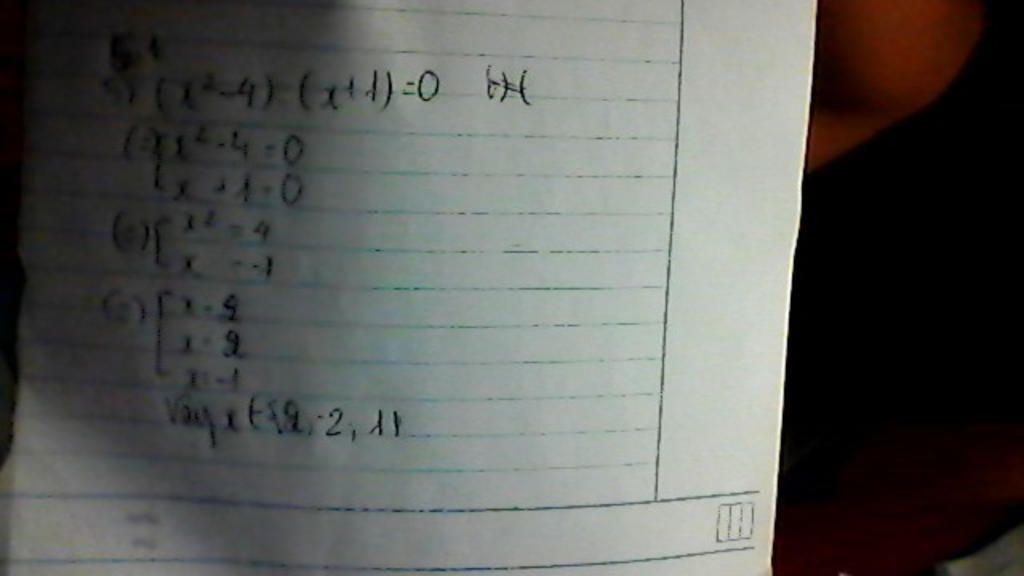 5.1
a) (x²-4) (x+1)=0
(=)[x²-4=0
x+1=0
(=)[x²=4
x=-1
(=)[x=2
x=2
x=-1
Vậy x∈{2,-2,1}